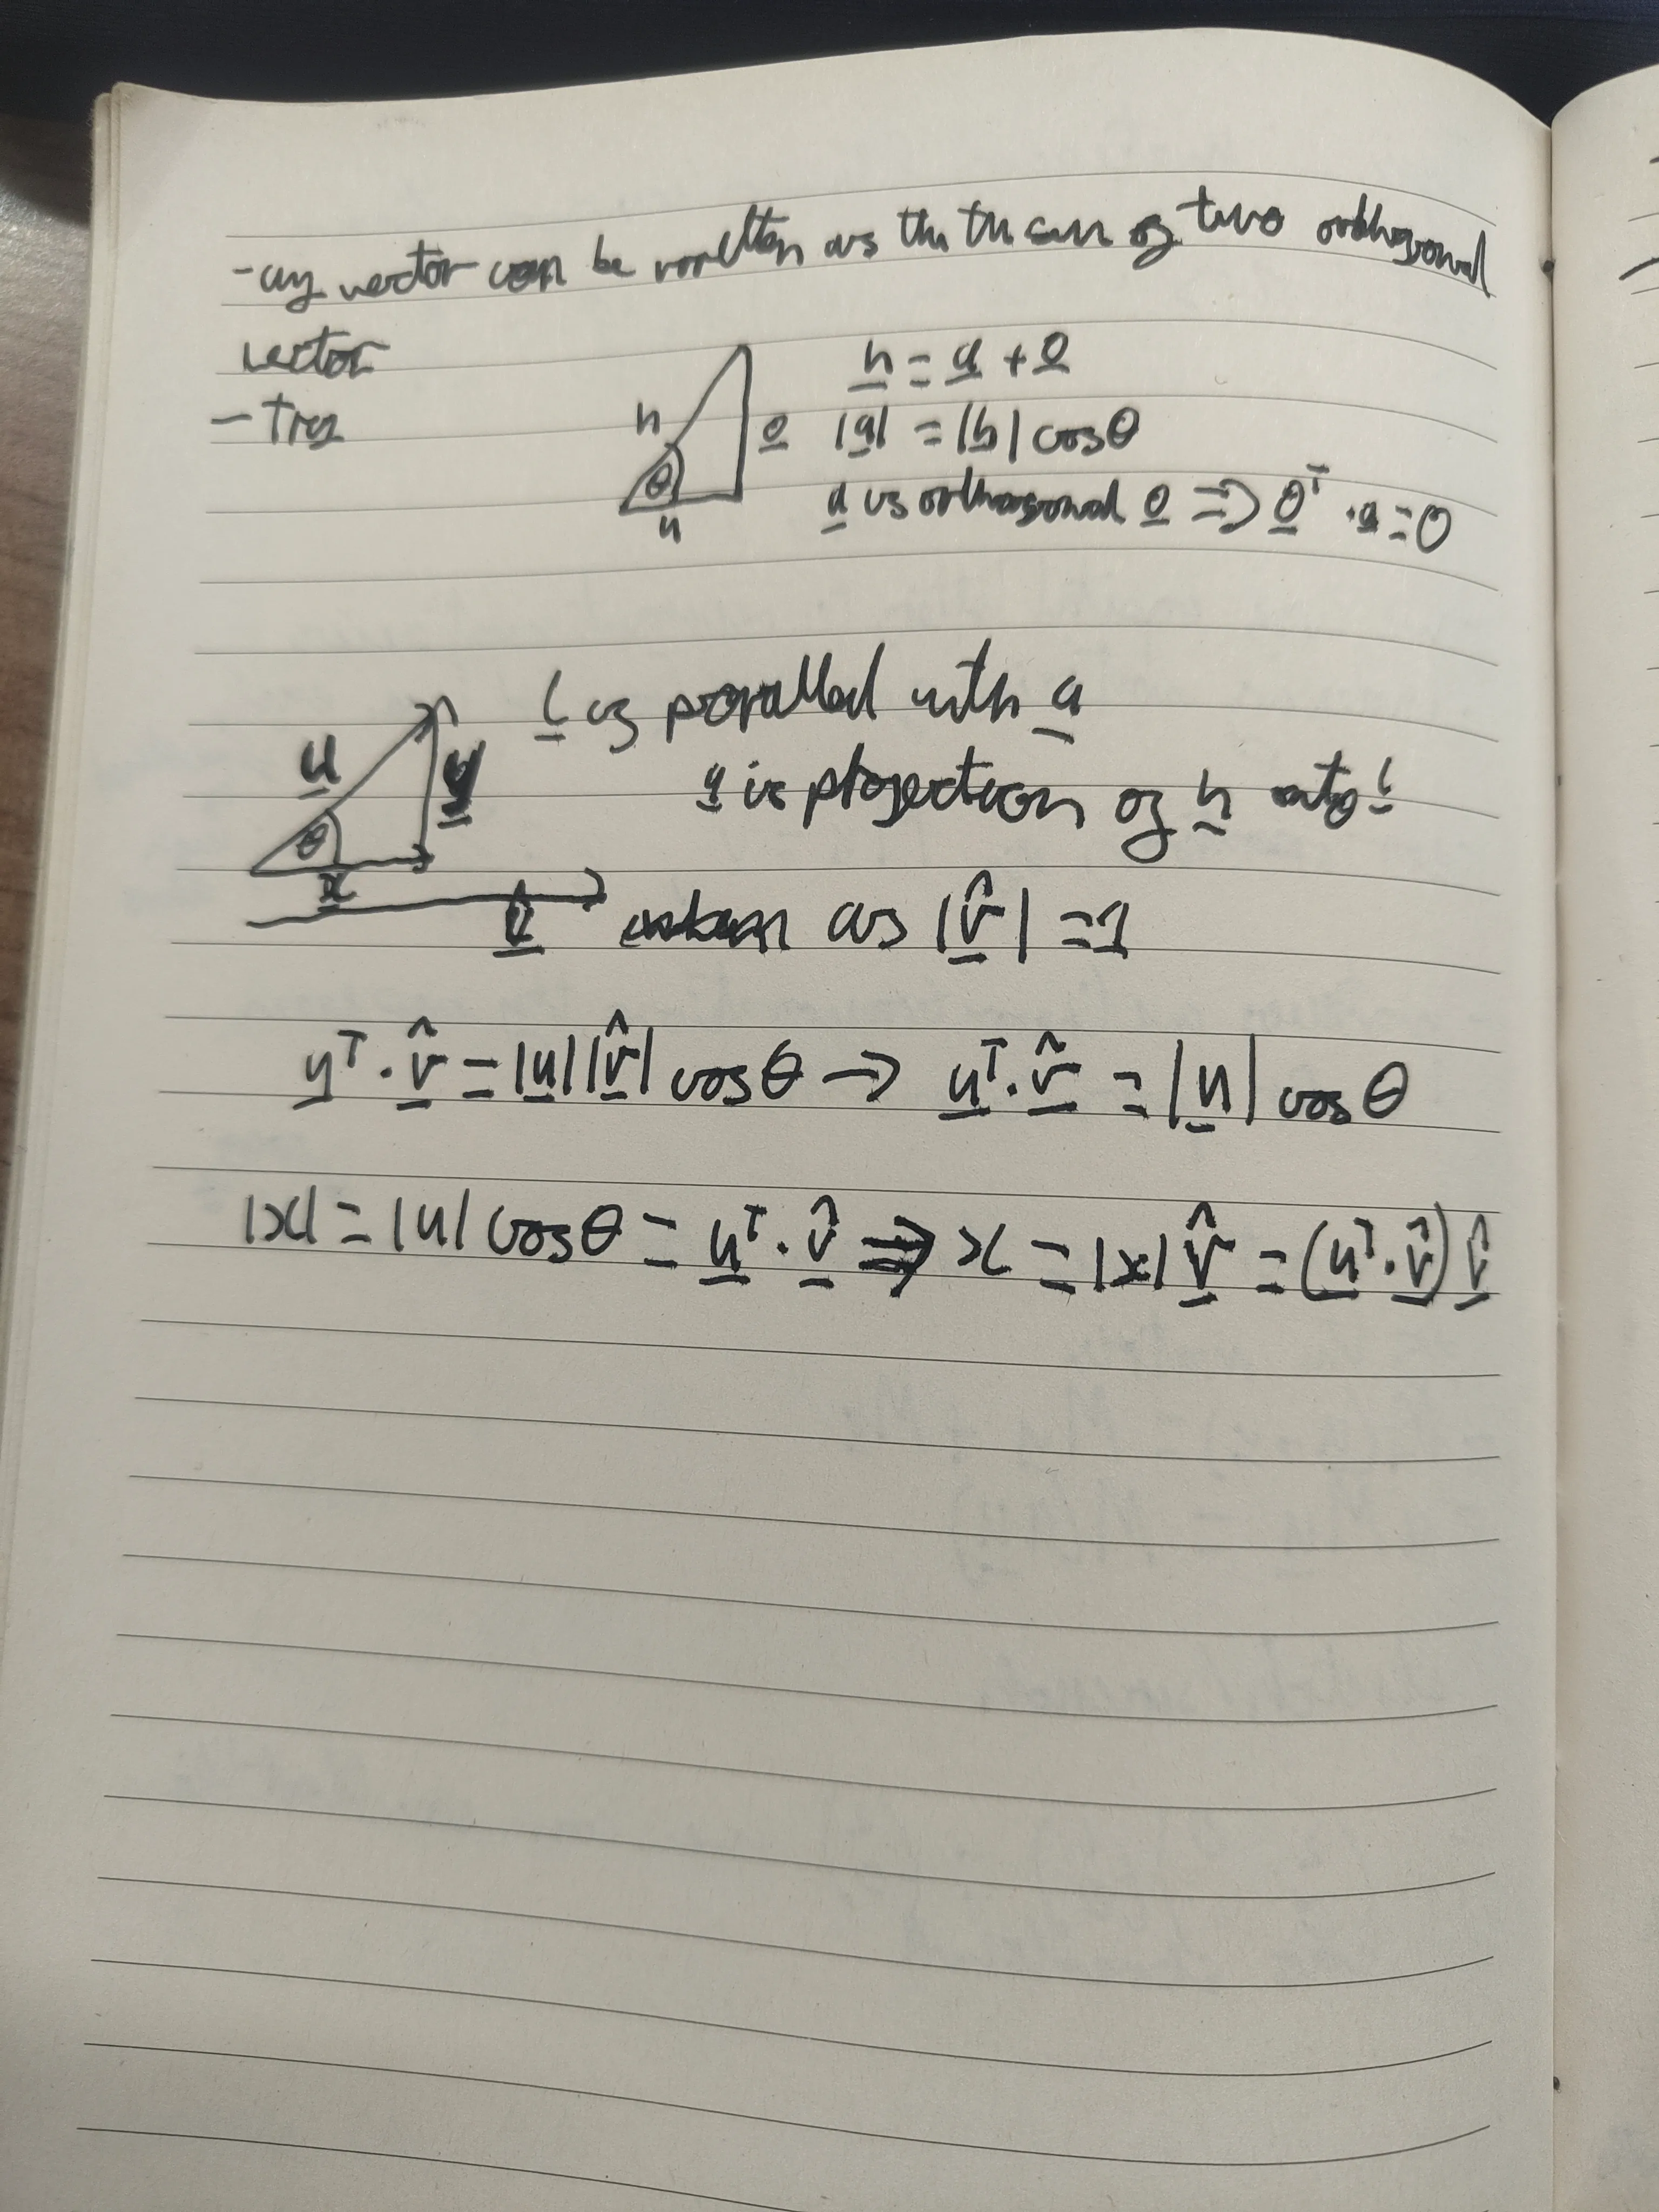 - any vector can be written as the the sum of two orthogonal
vector
- Trig
h
o
θ
a
h = a + o
|a| = |h| cosθ
a is orthogonal o ⇒ o^T · a = 0
l is parallel with a
a is projection of h onto l
u
y
θ
x
v̂
as |v̂| = 1
u^T · v̂ = |u||v̂| cosθ → u^T · v̂ = |u| cosθ
|x| = |u| cosθ = u^T · v̂ ⇒ x = |x| v̂ = (u^T · v̂) v̂